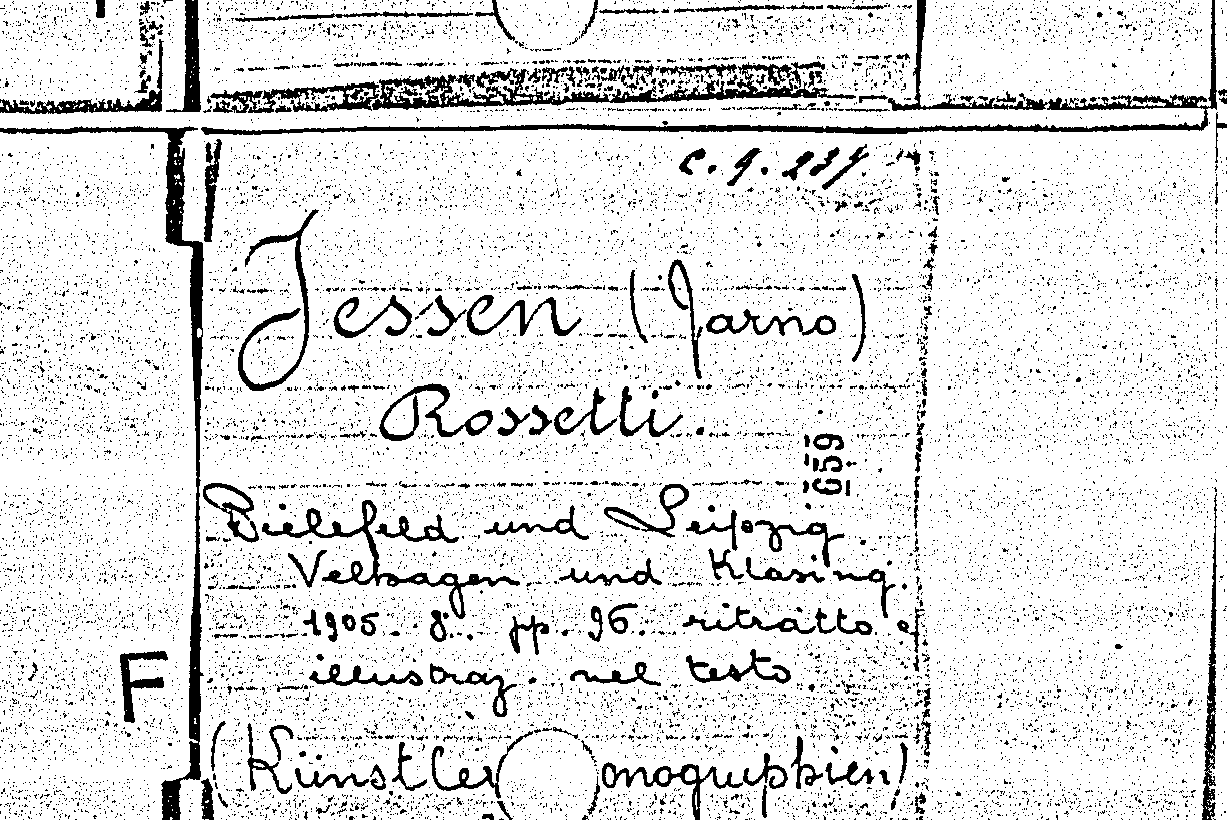 C. 9. 237.
Jessen (Jarno)
Rossetti.
659
Bielefeld und Leipzig.
Velhagen und Klasing.
1905. 8.. pp. 96. ritratto e
illustraz. nel testo
F
(Künstler onographien)